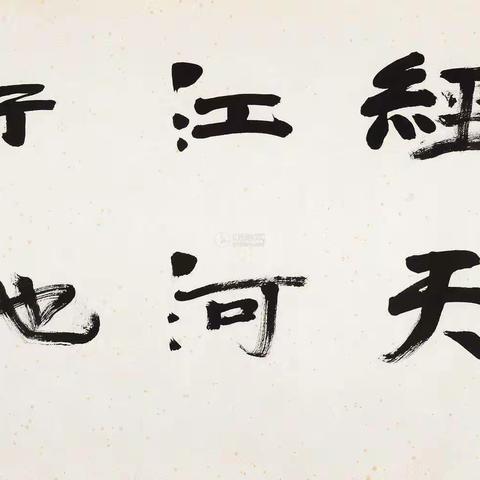 經天
江河
行地